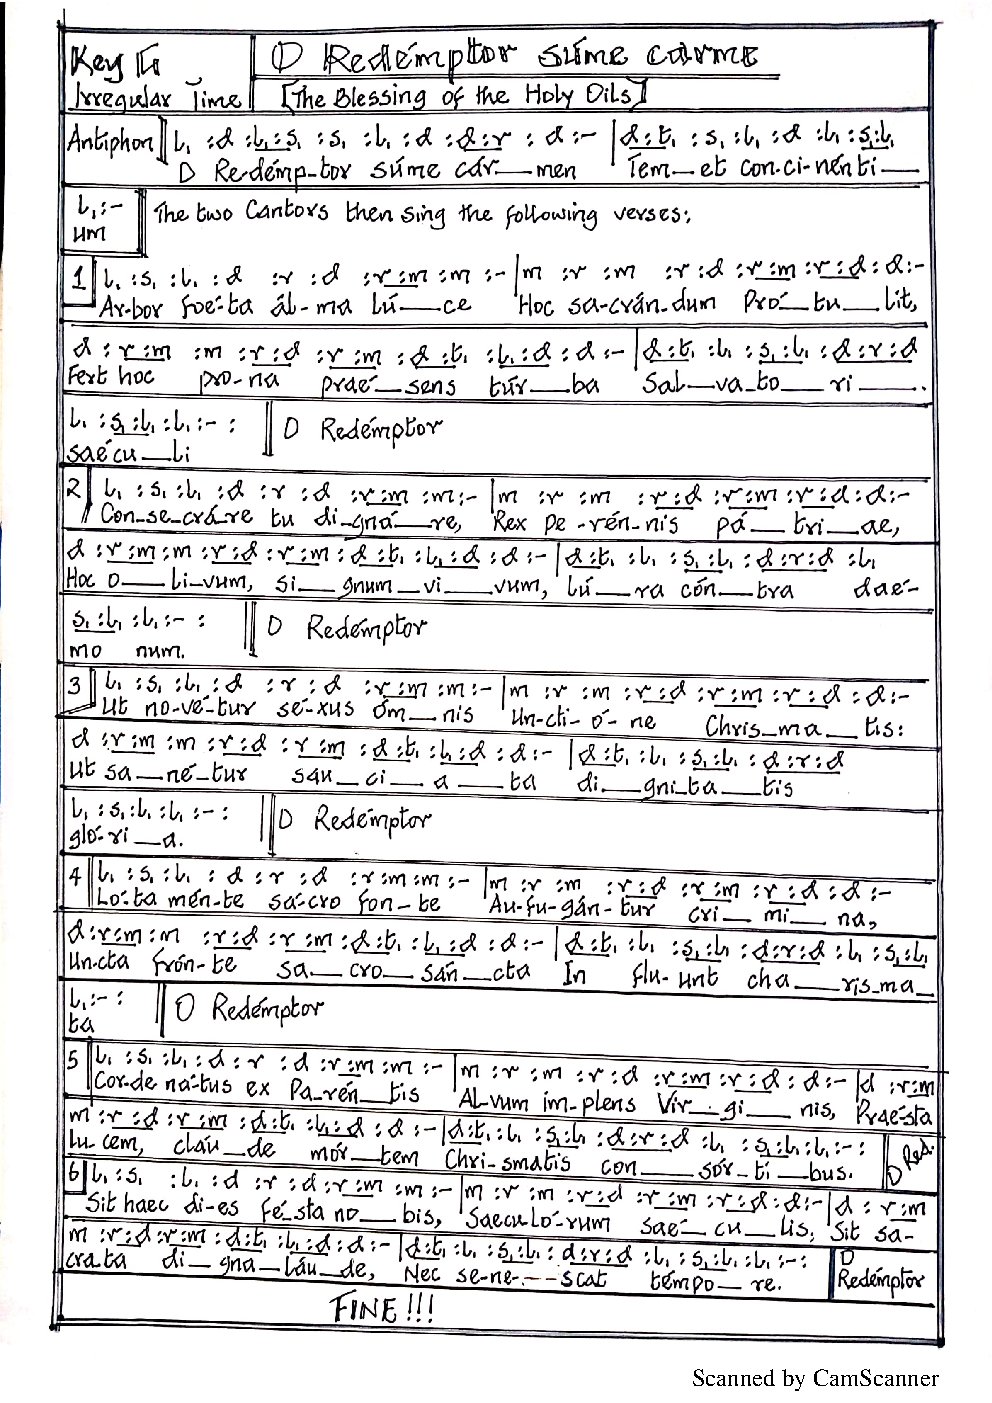 Key G
O Redémptor súme carme
Irregular Time
[The Blessing of the Holy Oils]
Antiphon
l₁ :d :l₁:s₁ :s₁ :l₁ :d :d:r : d :- |d:t₁ :s₁ :l₁ :d :l₁ :s₁:l₁
O Redémp-tor súme cár—men Tem—et con.ci-nénti—
l₁:- The two Cantors then sing the following verses:
um
1 l₁ :s₁ :l₁ :d :r :d :r:m :m :- |m :r :m :r:d :r:m :r:d:d:-
Ar-bor foe-ta ál-ma lú—ce Hoc sa-crán-dum pró-tu—lit,
d :r:m :m :r:d :r:m :d:t₁ :l₁:d :d:- |d:t₁ :l₁ :s₁:l₁ :d:r:d
Fert hoc pro-na praé—sens túr—ba Sal—va-to—ri—.
l₁ :s₁:l₁ :l₁:- : O Redémptor
saécu—li
2 l₁ :s₁ :l₁ :d :r :d :r:m :m:- |m :r :m :r:d :r:m :r:d:d:-
Con-se-crá-re tu di-gná—re, Rex pe-rén-nis pá—tri-ae,
d :r:m:m :r:d :r:m :d:t₁ :l₁:d :d:- |d:t₁ :l₁ :s₁:l₁ :d:r:d :l₁
Hoc o—li-vum, si—gnum—vi—vum, Lú—ra cón—tra dae-
s₁:l₁ :l₁:- : O Redémptor
mo num.
3 l₁ :s₁ :l₁ :d :r :d :r:m m:- |m :r :m :r:d :r:m :r:d :d:-
Ut no-vé-tur sé-xus óm—nis Un-cti-ó-ne Chris—ma—tis:
d :r:m :m :r:d :r:m :d:t₁ :l₁:d :d:- |d:t₁ :l₁ :s₁:l₁ :d:r:d
Ut sa—né-tur sau—ci—a—ta di—gni-ta—tis
l₁ :s₁:l₁ :l₁ :- : O Redémptor
gló-ri—a.
4 l₁ :s₁ :l₁ :d :r :d :r:m m:- |m :r :m :r:d :r:m :r:d :d:-
Lo-ta mén-te sa-cro fon-te Au-fu-gán-tur crí—mi—na,
d:r:m :m :r:d :r:m :d:t₁ :l₁:d :d:- |d:t₁ :l₁ :s₁:l₁ :d:r:d :l₁ :s₁:l₁
Un-cta frón-te sa—cro—sán—cta In flu-unt cha—ris-ma—
l₁:- : O Redémptor
ta
5 l₁ :s₁ :l₁ :d :r :d :r:m :m :- |m :r :m :r:d :r:m :r:d :d:- |d :r:m
Cor-de na-tus ex Pa-rén-tis Al-vum im-plens Vír-gi—nis, Praé-sta
m :r:d :r:m :d:t₁ :l₁:d :d:- |d:t₁ :l₁ :s₁:l₁ :d:r:d :l₁ :s₁:l₁:l₁:- :
lu-cem, cláu—de mór—tem Chri-smatis con—sór-ti—bus. O Red.
6 l₁ :s₁ :l₁ :d :r :d :r:m :m :- |m :r :m :r:d :r:m :r:d:d:- |d :r:m
Sit haec di-es fé-sta no—bis, Saeculó-rum saé-cu—lis, Sit sa-
m :r:d :r:m :d:t₁ :l₁:d:d:- |d:t₁ :l₁ :s₁:l₁ :d:r:d :l₁ :s₁:l₁:l₁:- : O
cra-ta di—gna—láu—de, Nec se-ne---scat témpo—re. Redémptor
FINE!!!
Scanned by CamScanner